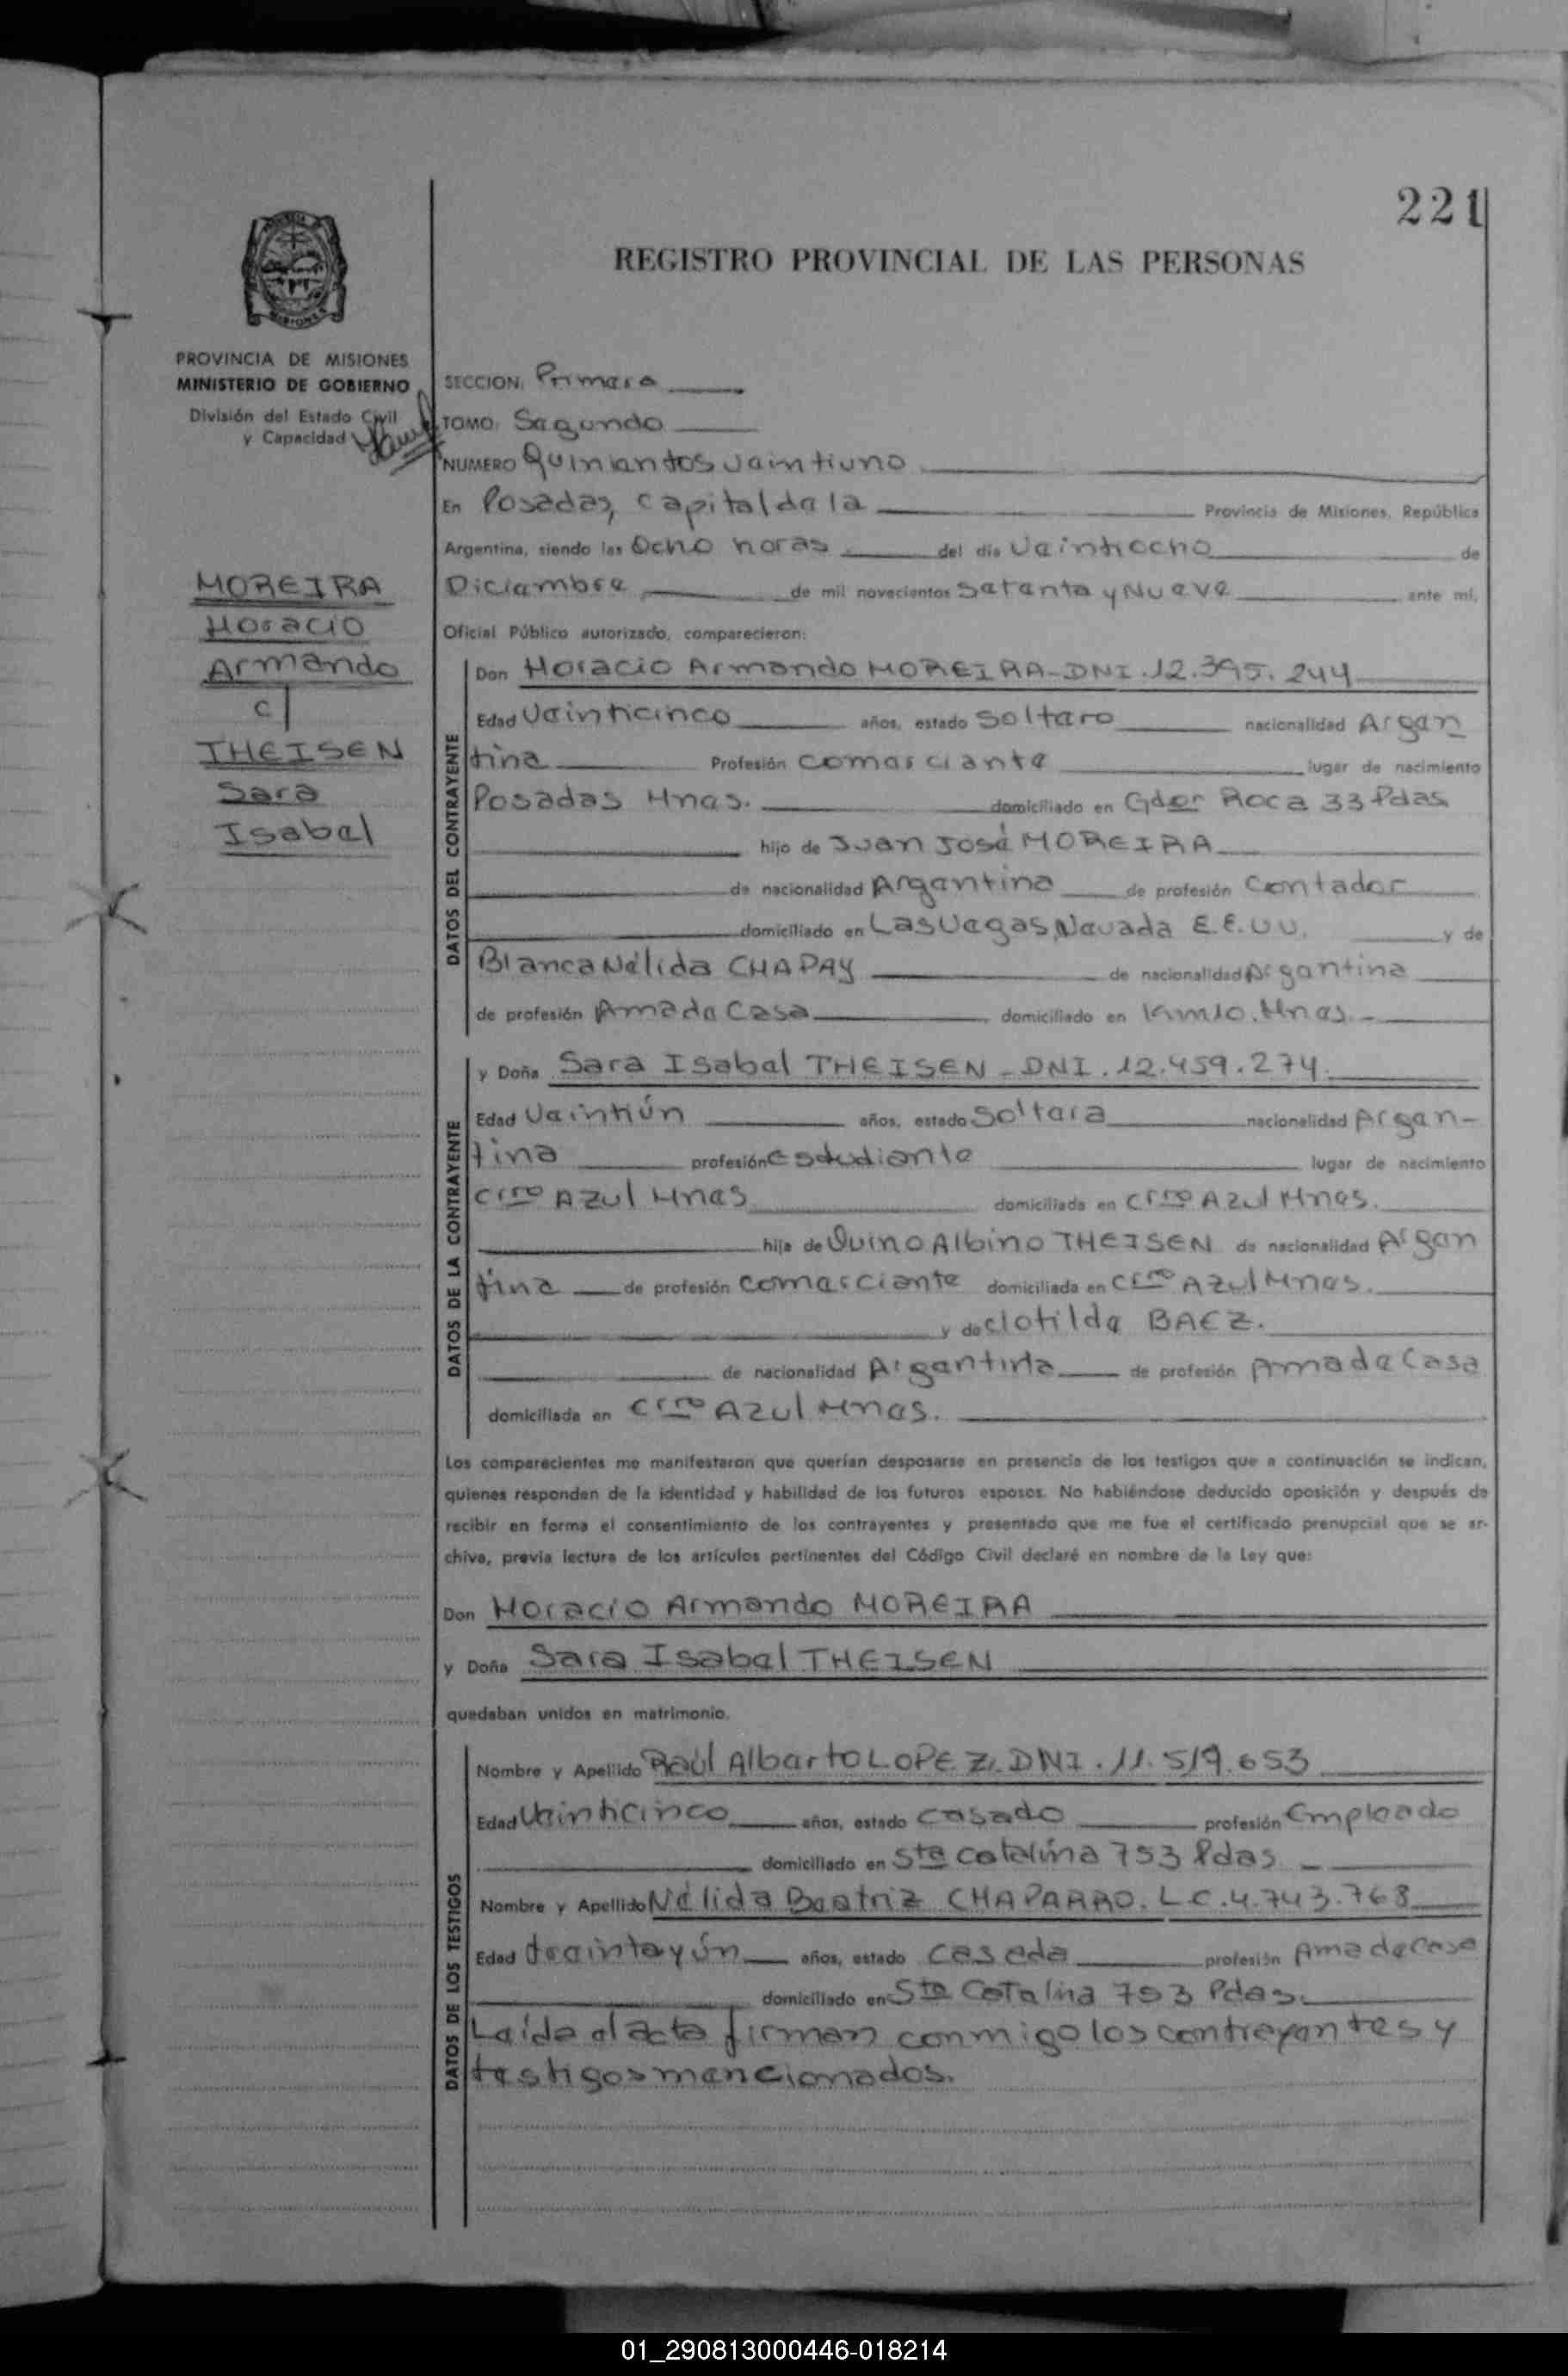 221
REGISTRO PROVINCIAL DE LAS PERSONAS
MISIONES
PROVINCIA DE MISIONES
MINISTERIO DE GOBIERNO
División del Estado Civil
y Capacidad
MOREIRA
Horacio
Armando
c/
THEISEN
Sara
Isabel
SECCION: Primera
TOMO: Segundo
NUMERO Quinientos veintiuno
En Posadas, capital de la Provincia de Misiones, República
Argentina, siendo las Ocho horas del día Veintiocho de
Diciembre de mil novecientos Setenta y Nueve ante mí,
Oficial Público autorizado, comparecieron:
DATOS DEL CONTRAYENTE
Don Horacio Armando MOREIRA-DNI.12.395.244
Edad Veinticinco años, estado Soltero nacionalidad Argen
tina Profesión comerciante lugar de nacimiento
Posadas Mnes. domiciliado en Gdor Roca 33 Pdas
hijo de Juan José MOREIRA
de nacionalidad Argentina de profesión Contador
domiciliado en Las Vegas, Nevada E.E.U.U. y de
Blanca Nélida CHAPAY de nacionalidad Argentina
de profesión Ama de Casa domiciliado en Km 10. Mnes.-
DATOS DE LA CONTRAYENTE
y Doña Sara Isabel THEISEN - DNI.12.459.274.
Edad Veintiún años, estado Soltera nacionalidad Argen-
tina profesión Estudiante lugar de nacimiento
Crro Azul Mnes domiciliada en Crro Azul Mnes.
hija de Quino Albino THEISEN de nacionalidad Argen
tina de profesión comerciante domiciliada en Crro Azul Mnes.
y de Clotilde BAEZ.
de nacionalidad Argentina de profesión Ama de Casa
domiciliada en Crro Azul Mnes.
Los comparecientes me manifestaron que querían desposarse en presencia de los testigos que a continuación se indican,
quienes responden de la identidad y habilidad de los futuros esposos. No habiéndose deducido oposición y después de
recibir en forma el consentimiento de los contrayentes y presentado que me fue el certificado prenupcial que se ar-
chiva, previa lectura de los artículos pertinentes del Código Civil declaré en nombre de la Ley que:
Don Horacio Armando MOREIRA
y Doña Sara Isabel THEISEN
quedaban unidos en matrimonio.
DATOS DE LOS TESTIGOS
Nombre y Apellido Raúl Alberto LOPEZ. DNI.11.519.653
Edad Veinticinco años, estado casado profesión Empleado
domiciliado en Sta Catalina 753 Pdas
Nombre y Apellido Nélida Beatriz CHAPARRO. L.C.4.743.768
Edad treinta y ún años, estado casada profesión Ama de Casa
domiciliado en Sta Catalina 753 Pdas.
Leída el acta firman conmigo los contrayentes y
testigos mencionados.
01_290813000446-018214